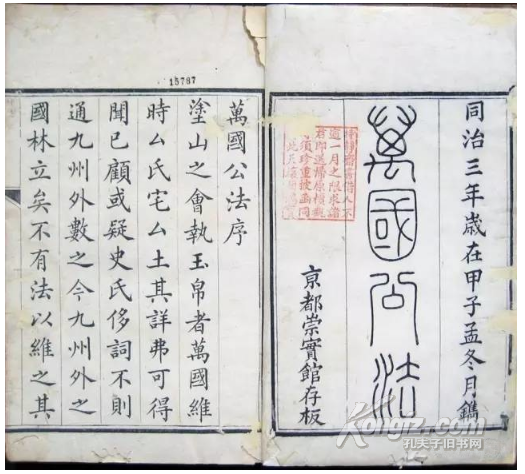 同治三年歲在甲子孟冬月鐫
萬國公法
京都崇實館存板
萬國公法序
塗山之會執玉帛者萬國維
時厶氏宅厶土其詳弗可得
聞已顧或疑史氏侈詞不則
通九州外數之今九州外之
國林立矣不有法以維之其
15767
Kongfz.com
孔夫子旧书网